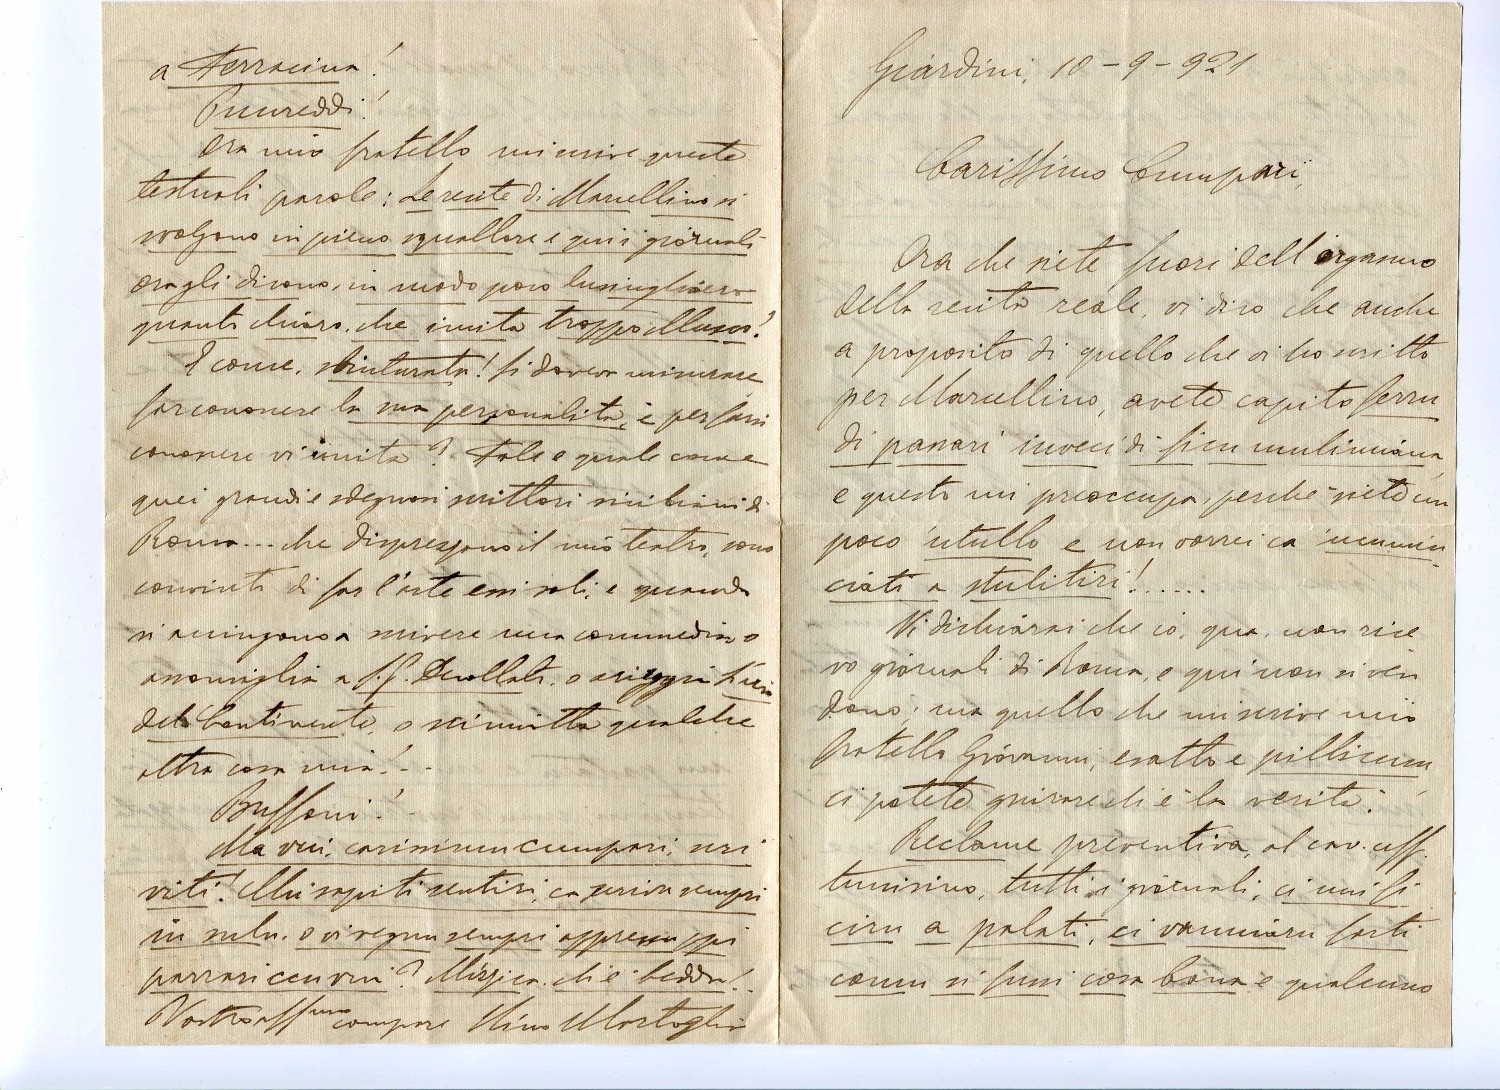 Giardini, 10-9-921
Carissimo Cumpari,
Ora che siete fuori dell'organno
della serata reale, vi dico che anche
a proposito di quello che vi ho scritto
per Marcellino, avete capito ferru
di panari inveci di ficu mulinciana,
e questo mi preoccupa, perchè siete un
poco 'ntullo e non vorrei ca 'ncumin
ciati a stulitiri!......
Vi dichiarai che io, qua, non rice
vo giornali di Roma, e qui non si ven
dono; ma quello che mi scrive mio
fratello Giovanni, esatto e pillicusu
ci potete giurare chi è la verità.
Reclame preventiva, al cav. uff.
tunisino, tutti i giornali, ci nni fi
ciru a palati, ci vanniaru forti
comu si fussi cosa bona e qualcuno
a Terracina!
Puureddi!
Ora mio fratello mi scrive queste
testuali parole: Le recite di Marcellino si
svolgono in pieno squallore e qui i giornali
ora gli dicono, in modo poco lusinghiero
quanto chiaro, che imita troppo Musco!
E come, sbinturata! Si doveva misurare
far conoscere la sua personalità, e per farsi
conoscere vi imita? Tale e quale come
quei grandi e sdegnosi scrittori siciliani di
Roma... che disprezzano il mio teatro, sono
convinti di far l'arte essi soli, e quando
si accingono a scrivere una commedia o
assomiglia a S. G. Decollato, o arieggia l'Aria
del Continente, o scimiotta qualche
altra cosa mia!..
Buffoni!
Ma vui, carissimu cumpari, sri
viti! Mi sapiti sentiri, ca sirivu sempri
in sulu, o vi vegnu sempri appressu ppi
parrari ccu vui? Mizzica, chi è bedda!..
Vostro aff.mo compare Nino Martoglio